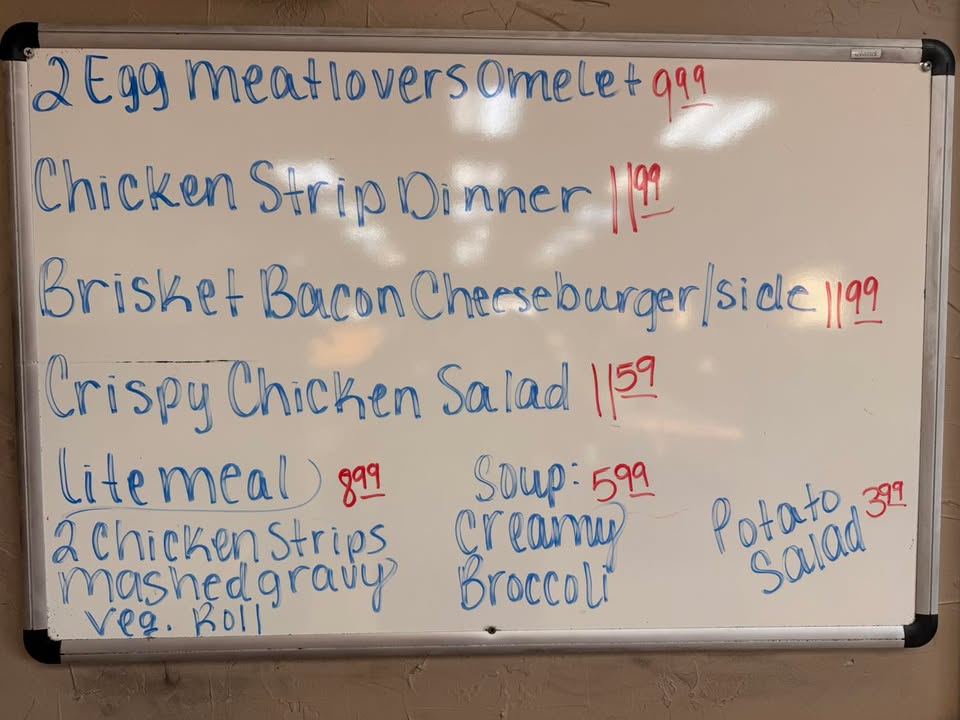 2 Egg meatlovers Omelet 9 99
Chicken Strip Dinner 11 99
Brisket Bacon Cheeseburger/side 11 99
Crispy Chicken Salad 11 59
Lite meal 8 99
2 Chicken Strips
mashed gravy
veg. Roll
Soup: 5 99
Creamy
Broccoli
Potato 3 99
Salad